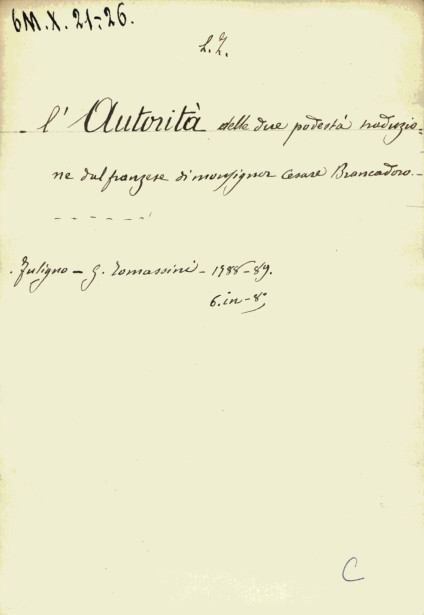 6M.X.21-26.
l' Autorità delle due podestà traduzio-
ne dal franzese di monsignor Cesare Brancadoro.-
Fuligno - G. Tomassini - 1788-89.
6. in - 8°
C